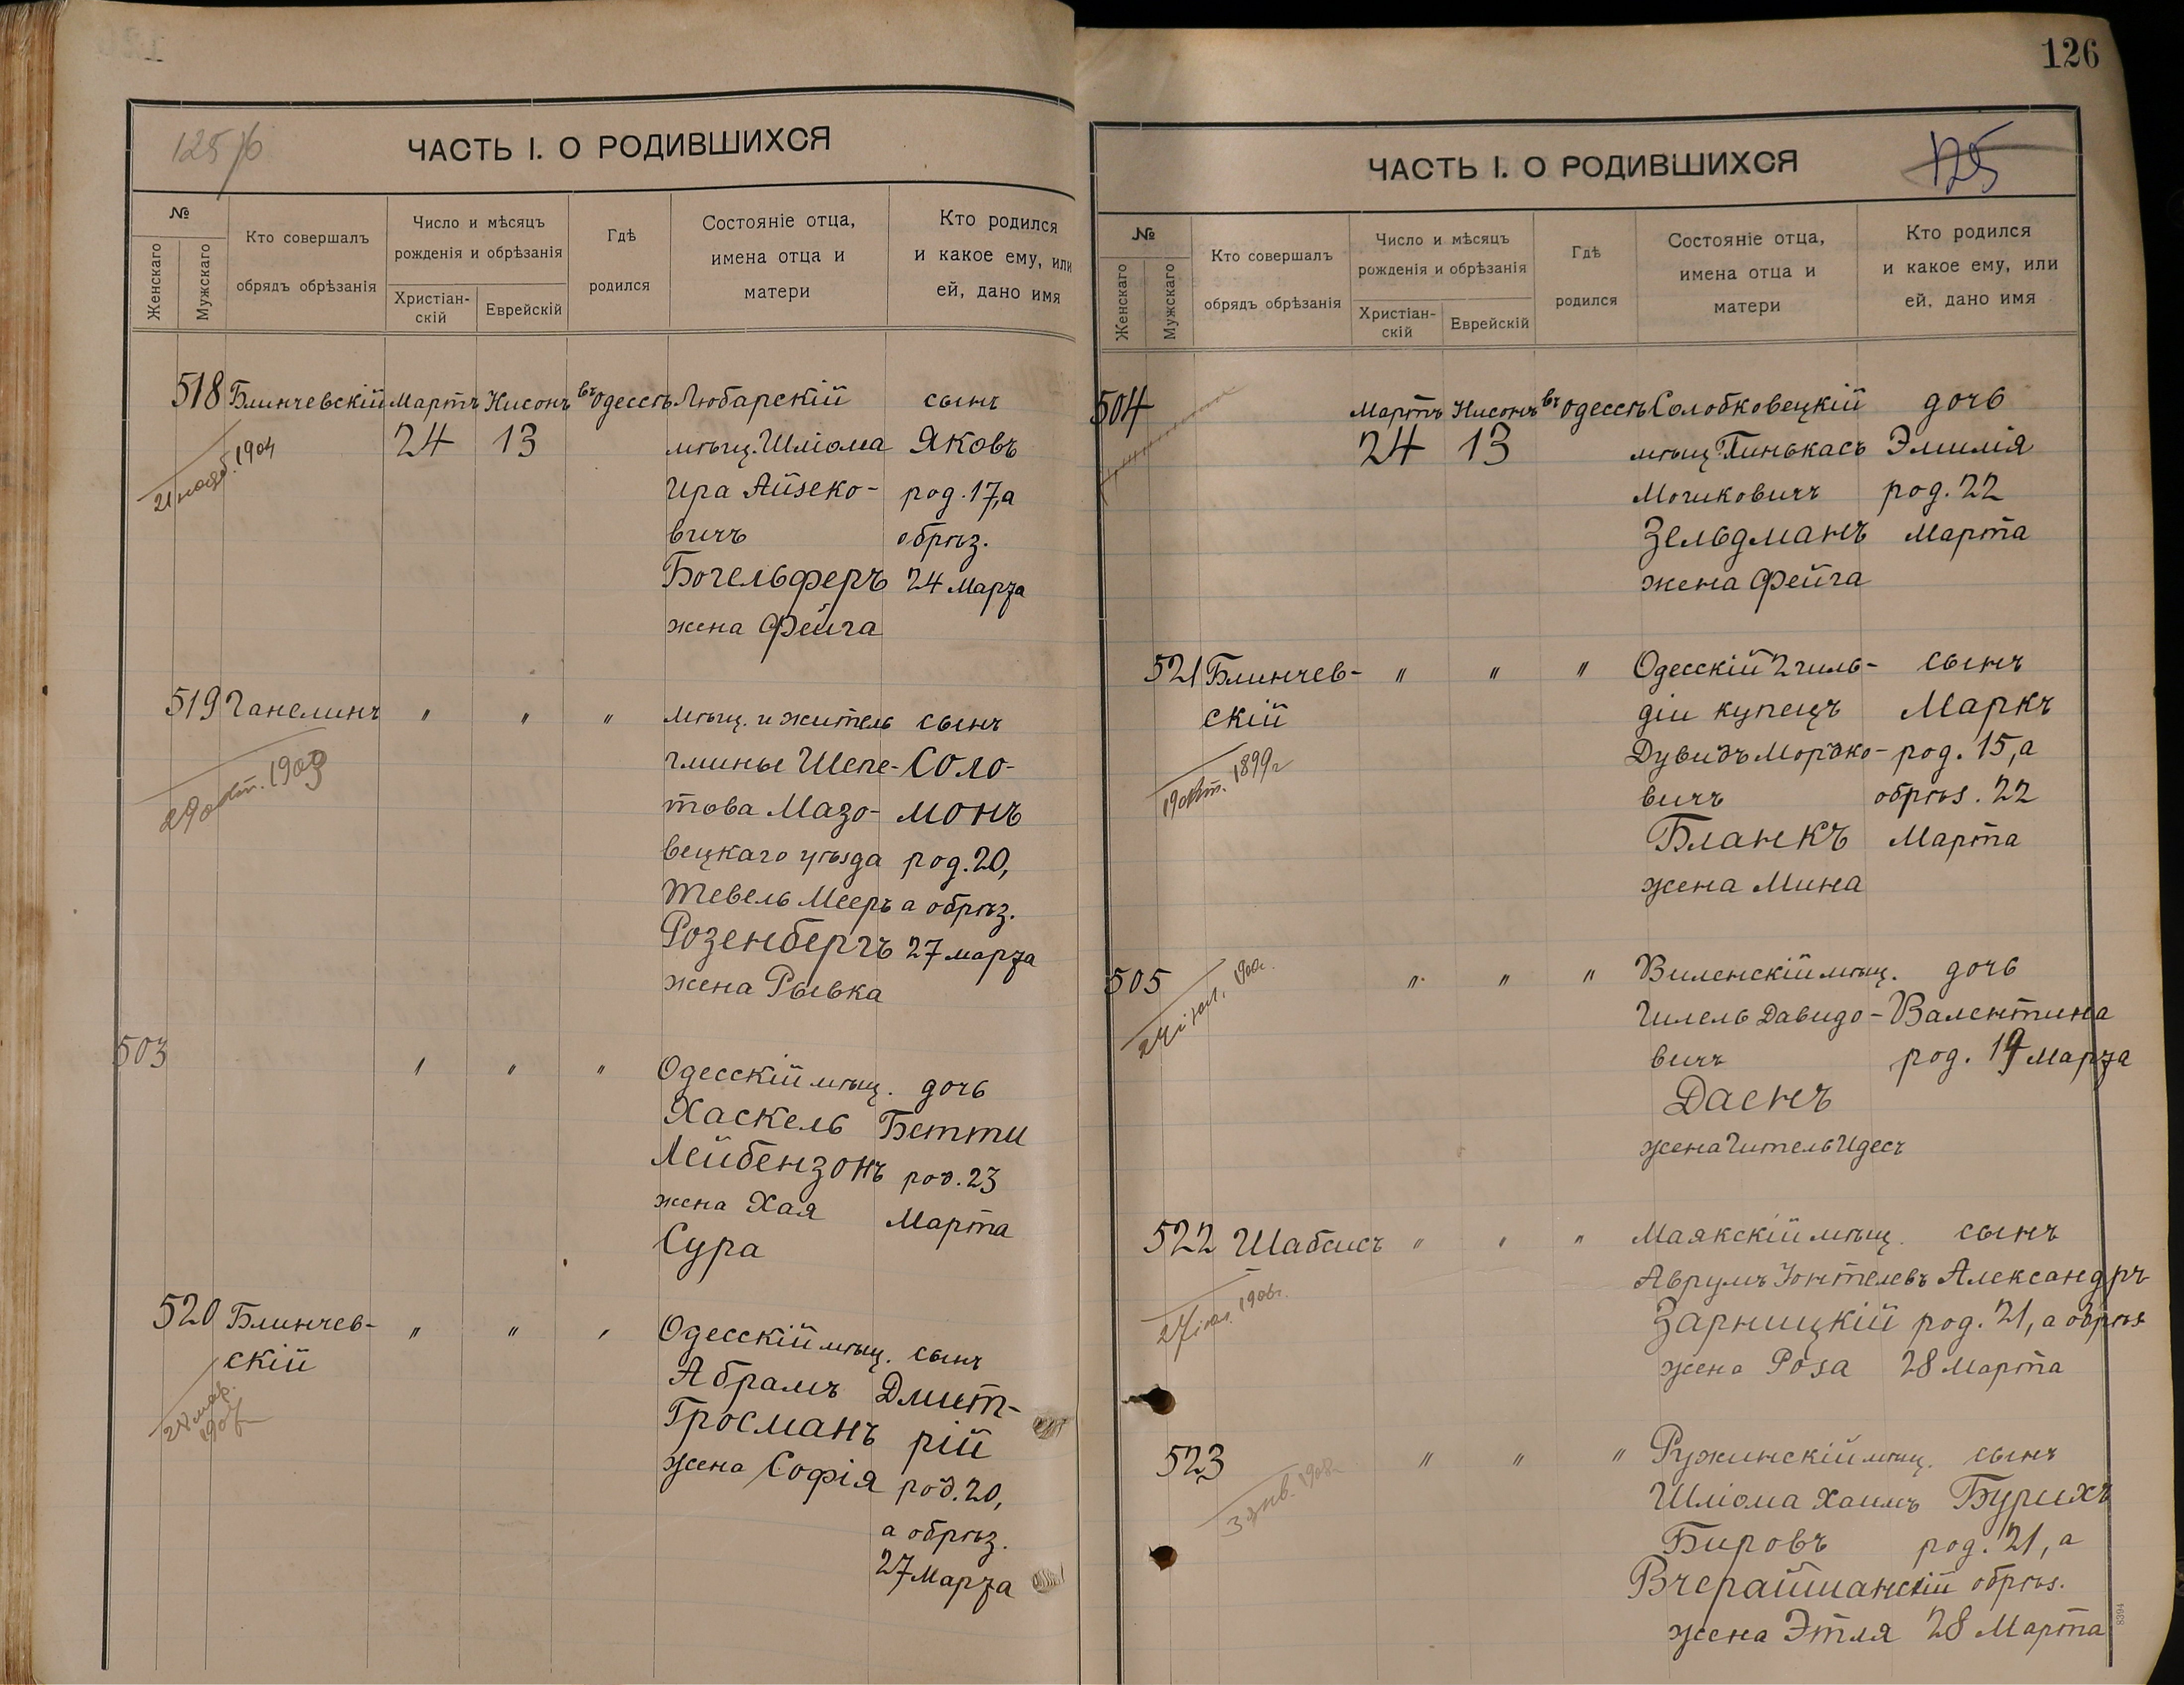 125/б
ЧАСТЬ I. О РОДИВШИХСЯ
№
Женскаго
Мужскаго
Кто совершалъ
обрядъ обрѣзанія
Число и мѣсяцъ
рожденія и обрѣзанія
Христіан-
скій
Еврейскій
Гдѣ
родился
Состояніе отца,
имена отца и
матери
Кто родился
и какое ему, или
ей, дано имя
518 Блинчевскій Мартъ Нисонъ въ Одессѣ Любарскій сынъ
24 13 мѣщ. Шліома Яковъ
21 нояб. 1904
Ира Айзеко- род. 17, а
вичъ обрѣз.
Богельферъ 24 Марта
жена Фейга
519 Ганелинъ " " " мѣщ. и житель сынъ
гмины Шепе- Соло-
29 окт. 1903
това Мазо- монъ
вецкаго уѣзда род. 20,
Тевель Мееръ а обрѣз.
Розенбергъ 27 марта
жена Рывка
503 " " " Одесскій мѣщ. дочь
Хаскель Бетти
Лейбензонъ род. 23
жена Хая Марта
Сура
520 Блинчев- " " " Одесскій мѣщ. сынъ
скій Абрамъ Дмит-
Гросманъ рій
жена Софія род. 20,
а обрѣз.
27 Марта
126
ЧАСТЬ I. О РОДИВШИХСЯ
125
№
Женскаго
Мужскаго
Кто совершалъ
обрядъ обрѣзанія
Число и мѣсяцъ
рожденія и обрѣзанія
Христіан-
скій
Еврейскій
Гдѣ
родился
Состояніе отца,
имена отца и
матери
Кто родился
и какое ему, или
ей, дано имя
504 Мартъ Нисонъ въ Одессѣ Солобковецкій дочь
24 13 мѣщ. Пинькасъ Эмилія
Мошковичъ род. 22
Зельдманъ Марта
жена Фейга
521 Блинчев- " " " Одесскій 2 гиль- сынъ
скій діи купецъ Маркъ
19 окт. 1899 г
Дувидъ Мордко- род. 15, а
вичъ обрѣз. 22
Бланкъ Марта
жена Мина
505 " " " Виленскій мѣщ. дочь
Гилель Давидо- Валентина
вичъ род. 19 Марта
Даенъ
жена Гитель Идесъ
522 Шабсисъ " " " Маякскій мѣщ. сынъ
Аврумъ Юнтелевъ Александръ
Зарницкій род. 21, а обрѣз
жена Роза 28 Марта
523 " " " Ружинскій мѣщ. сынъ
Шліома Хаимъ Бурихъ
Бировъ род. 21, а
Вчерайшанскій обрѣз.
жена Этля 28 Марта
8394